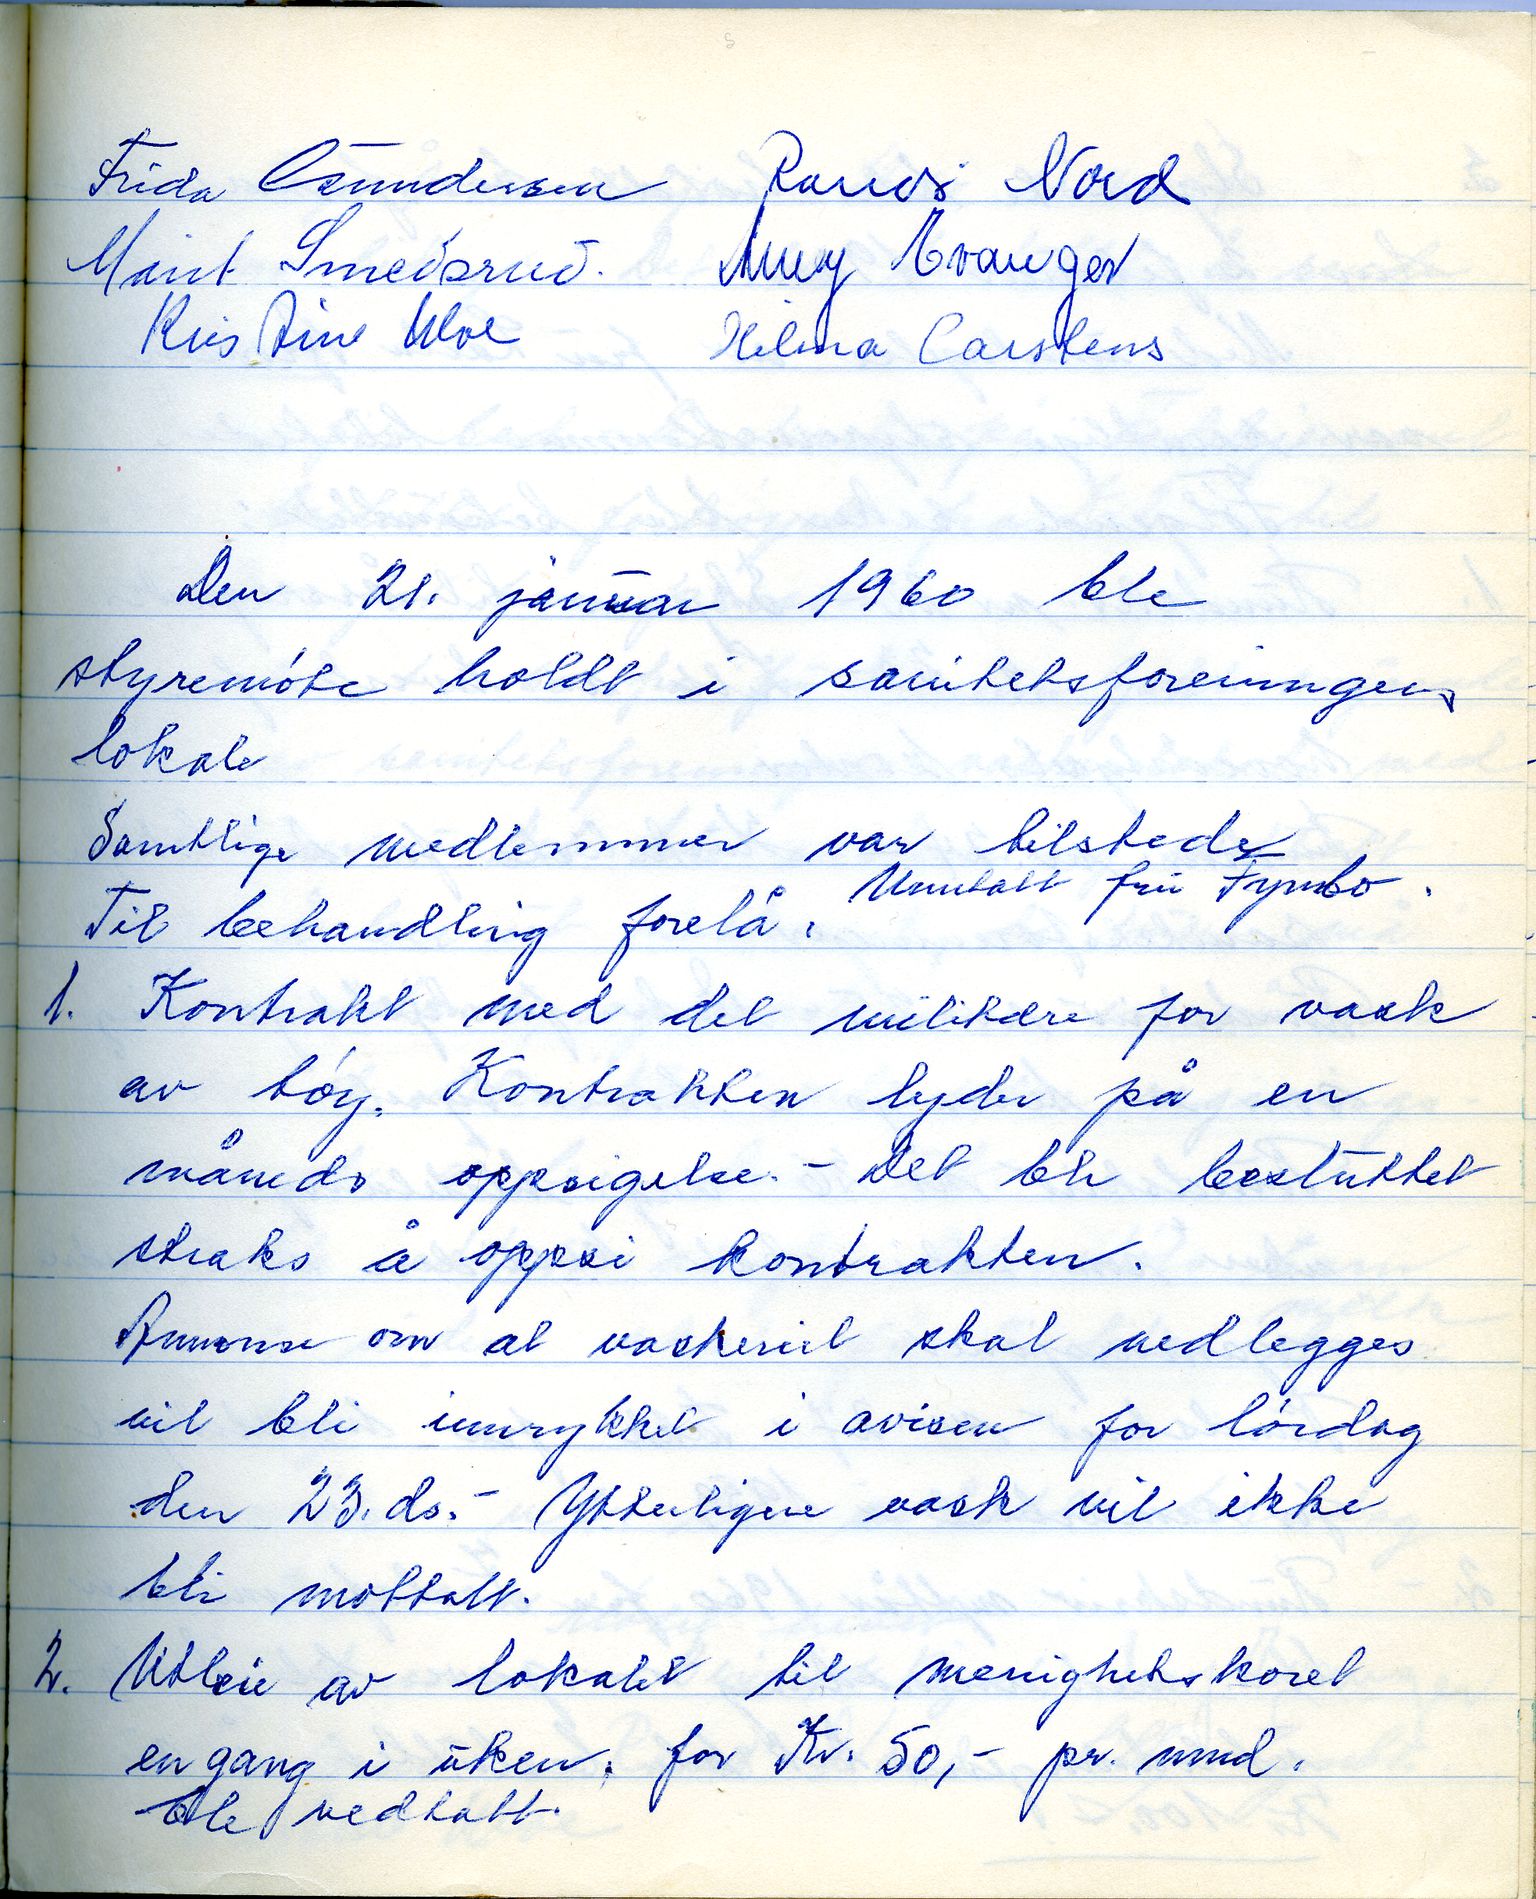 Frida Gundersen Randi Nord
Marit Smedsrud. Amy Evanger
Kristine Moe Helma Carstens
Den 21. januar 1960 ble
styremöte holdt i sanitetsforeningens
lokale
Samtlige medlemmer var tilstede
Unntatt fru Fymbo.
Til behandling forelå:
1. Kontrakt med det militære for vask
av töy. Kontrakten lyder på en
måneds oppsigelse. – Det ble besluttet
straks å oppsi kontrakten.
Annonse om at vaskeriet skal nedlegges
vil bli innrykket i avisen for lördag
den 23. ds. – Ytterligere vask vil ikke
bli mottatt.
2. Utleie av lokalet til menighetskoret
en gang i uken, for Kr. 50,- pr. mnd.
ble vedtatt.